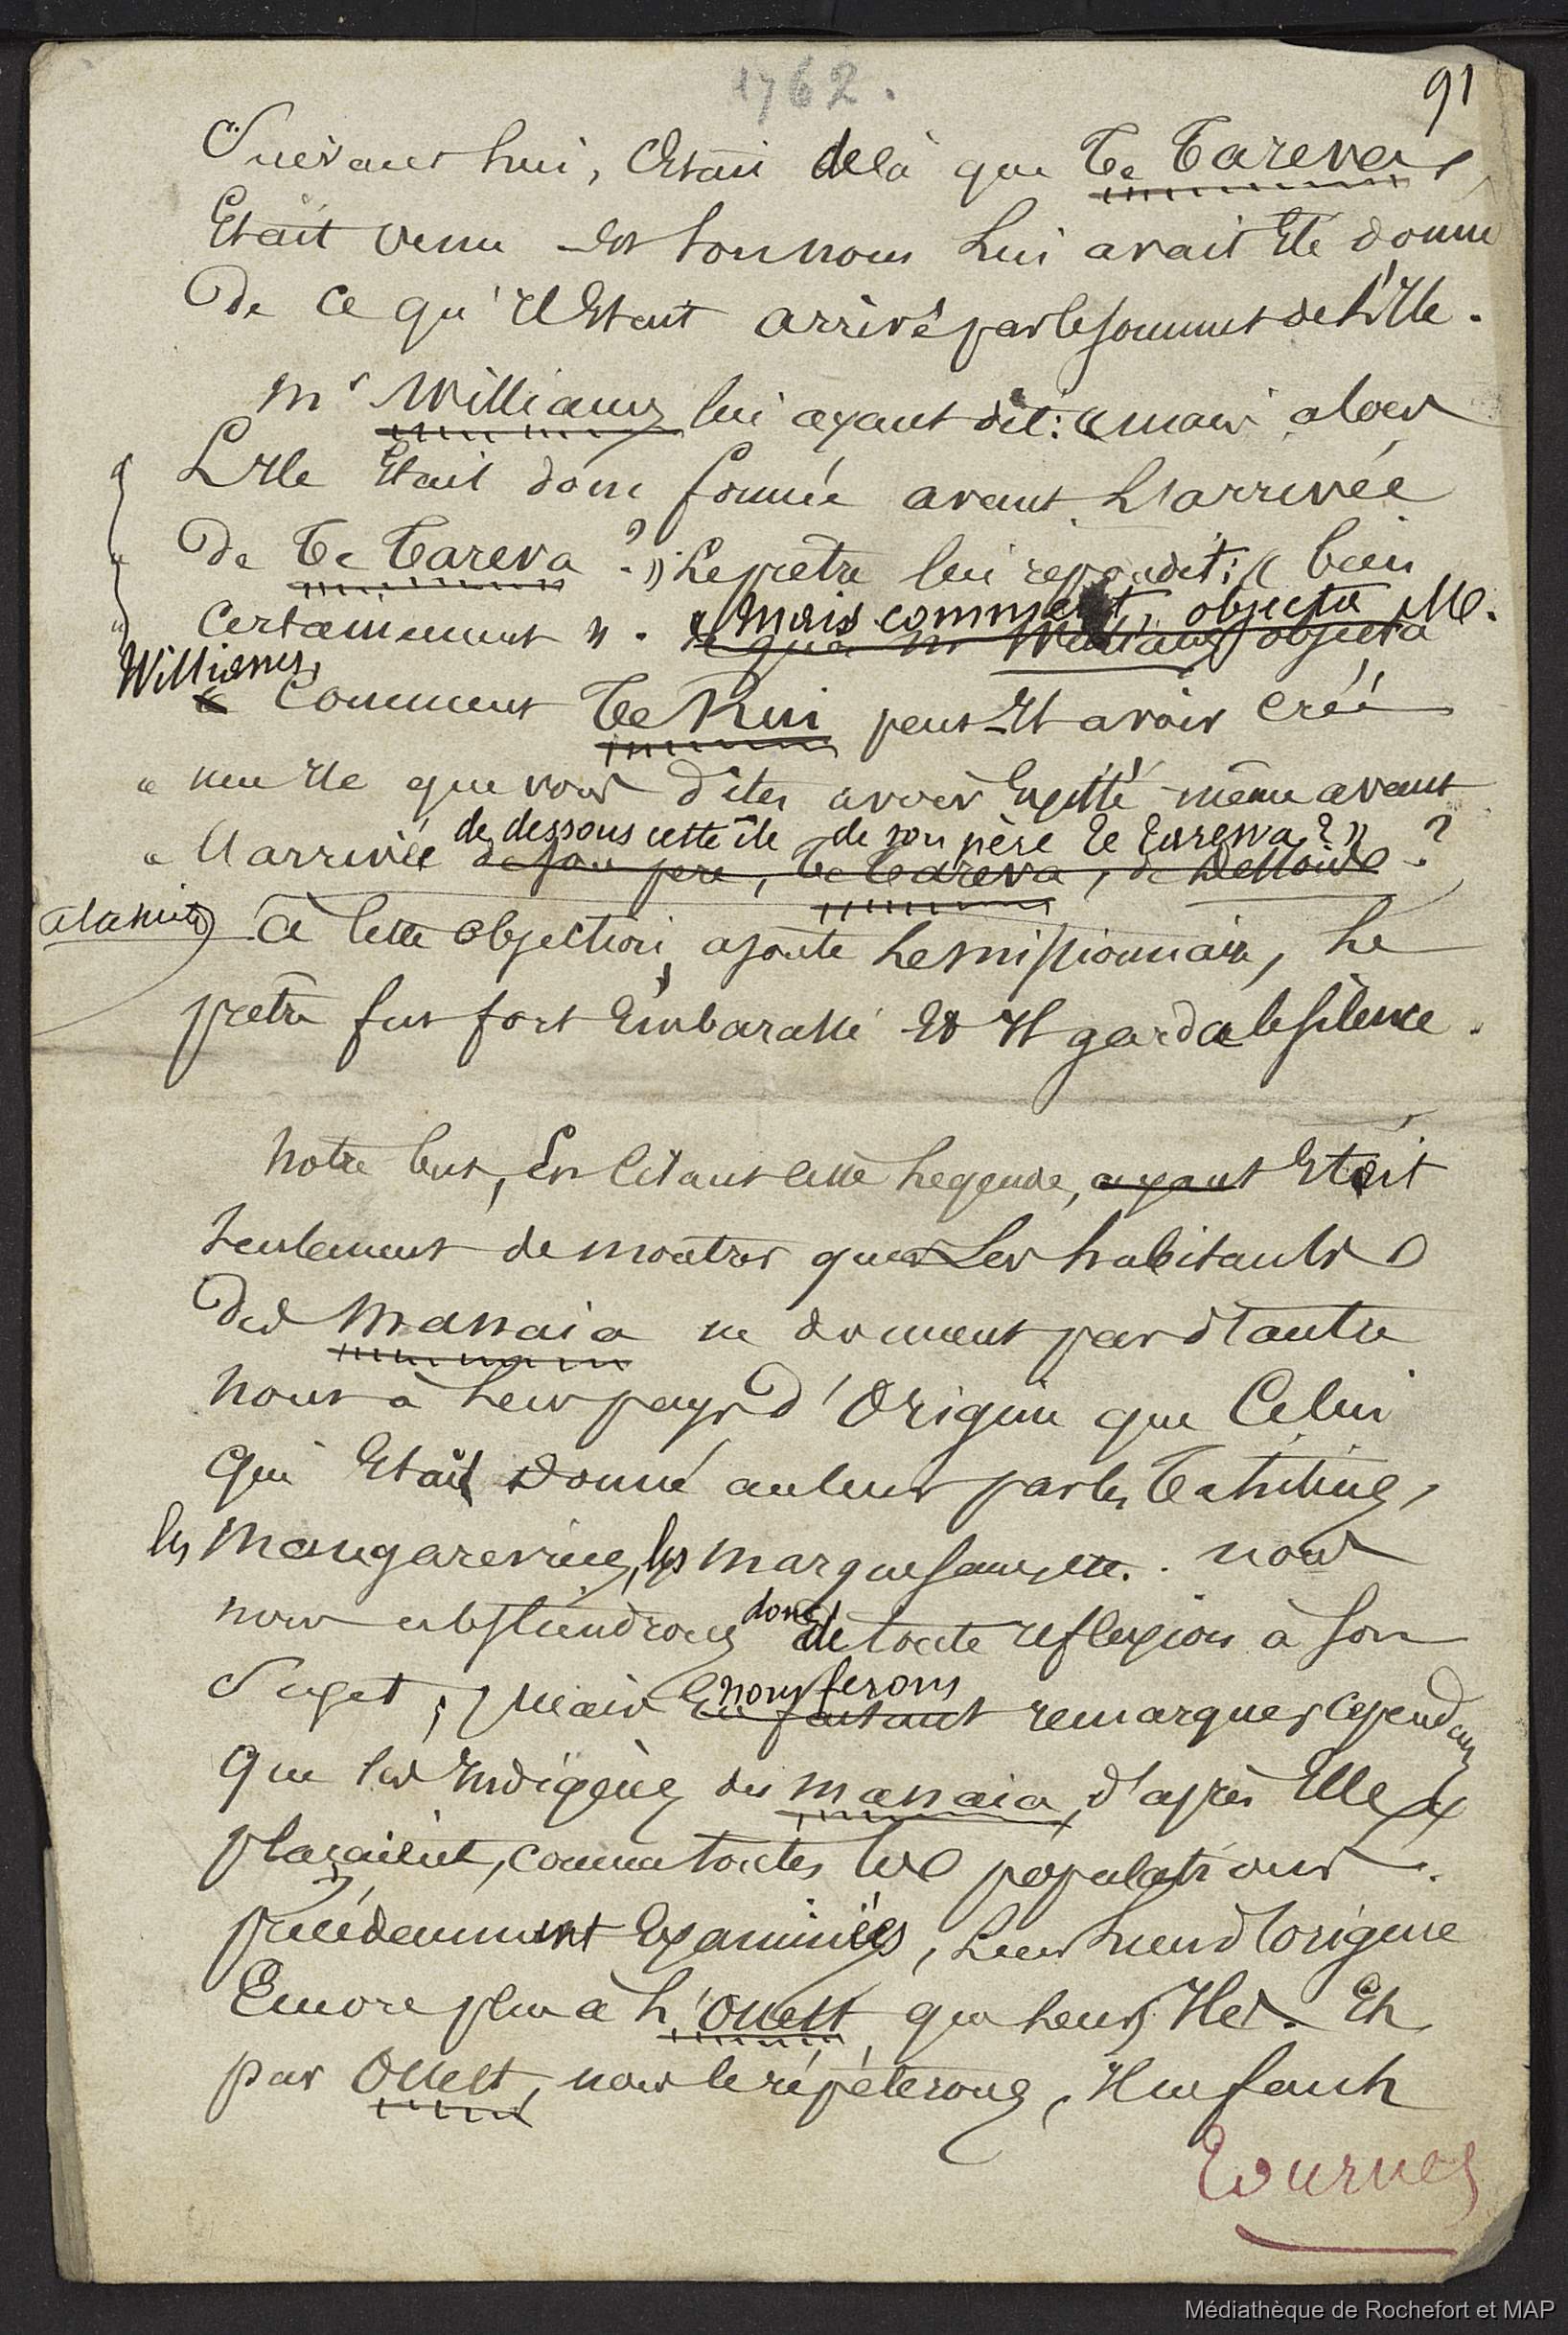 1762.
91
Suivant lui, c'était de là que Te Tareva
était venu et son nom lui avait été donné
de ce qu'il était arrivé par le sommet de l'île.
Mr Williams lui ayant dit: « mais alors
L'île était donc formée avant l'arrivée
de Te Tareva ? » Le prêtre lui répondit: « bien
certainement ». « Mais comment, objecta M.
à quoi Mr Williams objecta
Williams,
« Comment Te Rui peut-il avoir créé
« une île que vous dites avoir existé même avant
de dessous cette île de son père Te Tareva ? »
« l'arrivée de son père, Te Tareva, de dessous ?
à la suite) à cette objection, ajoute le missionnaire, le
prêtre fut fort embarassé et il garda le silence.
Notre but, en citant cette légende, ayant était
seulement de montrer que les habitants
des Manaia ne donnent pas d'autre
nom à leur pays d'origine que celui
qui était donné au leur par les Tahitiens,
les Mangareviens, les Marquesans, etc. nous
nous abstiendrons donc de toute reflexion à son
nous ferons
sujet; mais en faisant remarquer cependant
que les Indigènes des Manaia, d'après elle,
plaçaient, comme toutes les populations
précédemment examinées, leur lieu d'origine
Encore plus à l'Ouest que leurs îles. Et
par Ouest, nous le répéterons, il ne faut
Tournez
Médiathèque de Rochefort et MAP